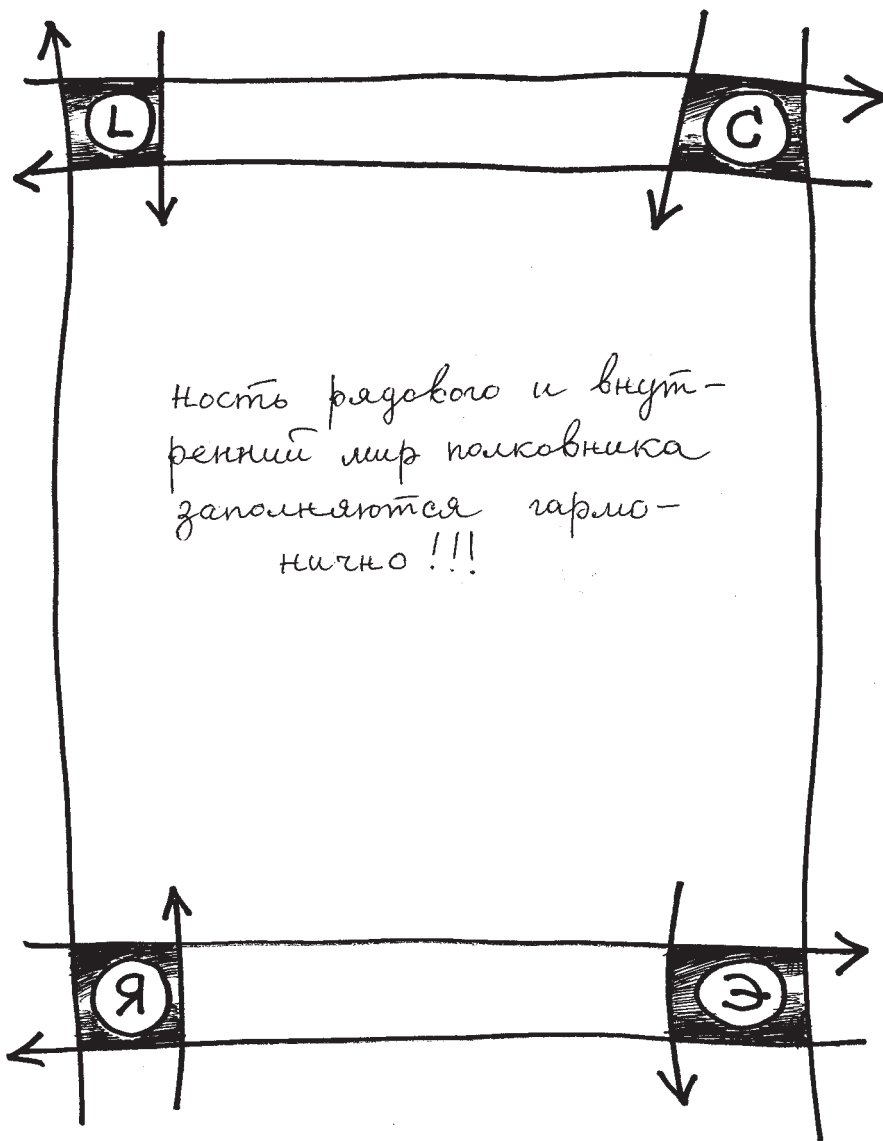 L С
ность рядового и внут-
ренний мир полковника
заполняются гармо-
нично!!!
Я Э